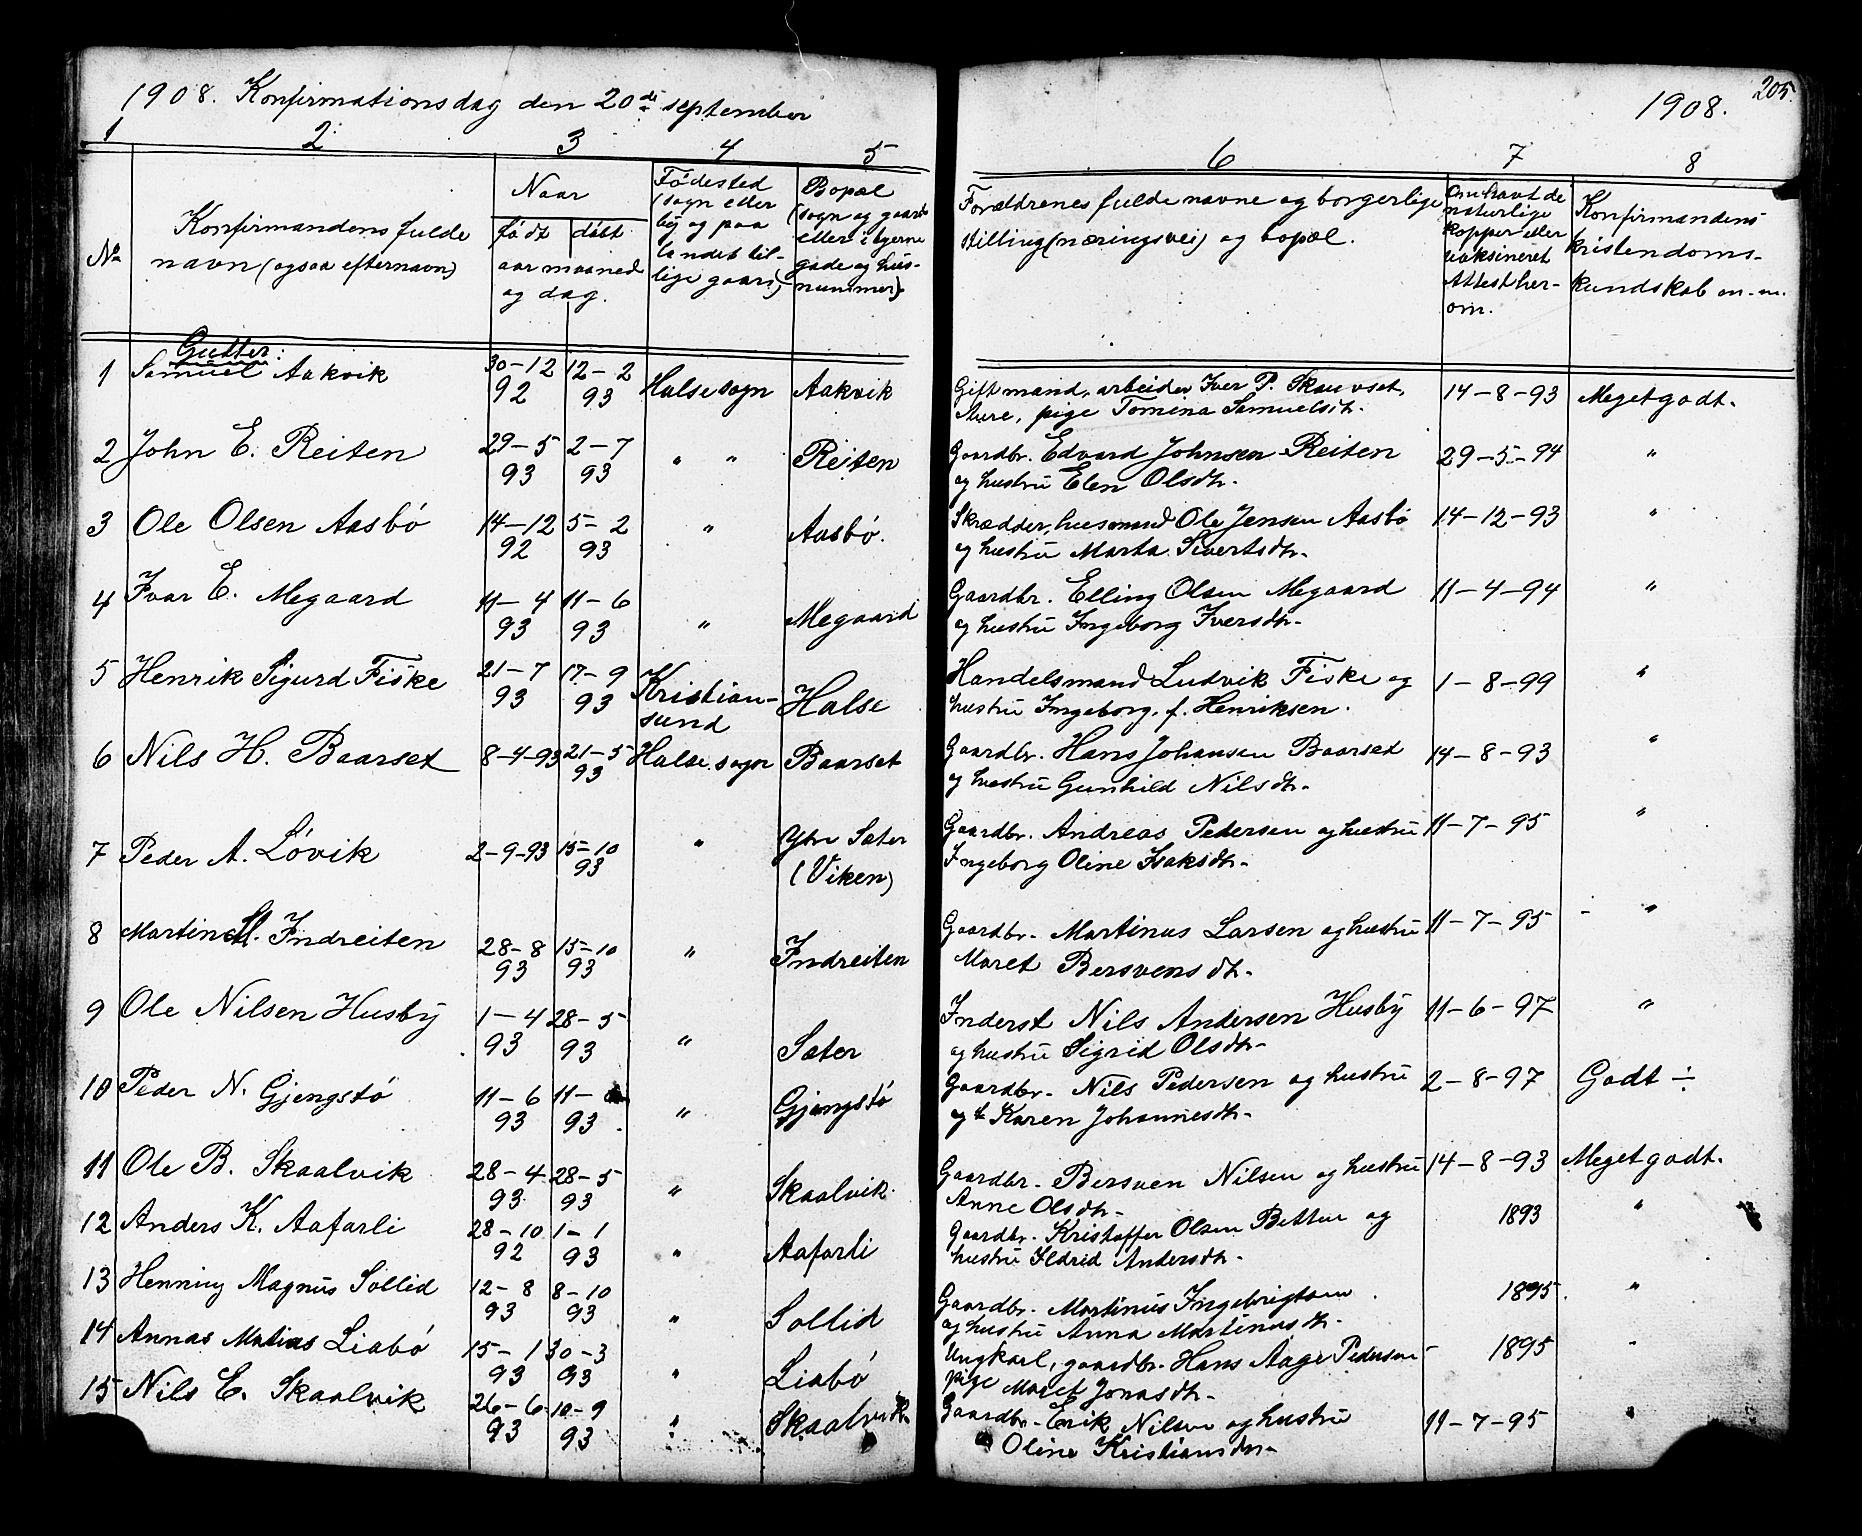 1908. Konfirmationsdag den 20de september
1908. 205.
1 2 3 4 5 6 7 8
No
Konfirmandens fulde
navn (ogsaa efternavn)
Naar
født døbt
aar maaned
og dag.
Fødested
(sogn eller
by og paa
landet til-
lige gaard)
Bopæl
(sogn og gaard
eller i byerne
gade og hus-
nummer).
Forældrenes fulde navne og borgerlige
stilling (næringsvei) og bopæl.
Om havt de
naturlige
kopper eller
vaksineret
Attest her-
om.
Konfirmandens
kristendoms-
kundskab m. m.
Gutter:
1 Samuel Aakvik 30-12 92 12-2 93 Halse sogn Aakvik
Gift mand, arbeider Iver P. Skauvset,
Sture, pige Tomena Samuelsdtr.
14-8-93 Meget godt.
2 John E. Reiten 29-5 93 2-7 93 " " Reiten
Gaardbr. Edvard Johnsen Reiten
og hustru Elen Olsdtr.
29-5-94 "
3 Ole Olsen Aasbø 14-12 92 5-2 93 " Aasbø.
Skrædder, husmand Ole Jensen Aasbø
og hustru Marta Sivertsdtr.
14-12-93 "
4 Ivar E. Megaard 11-4 93 11-6 93 " Megaard
Gaardbr. Elling Olsen Megaard
og hustru Ingeborg Iversdtr.
11-4-94 "
5 Henrik Sigurd Fiske 21-7 93 17-9 93 Kristian-
sund Halse
Handelsmand Ludvik Fiske og
hustru Ingeborg, f. Henriksen.
1-8-99 "
6 Nils H. Baarset 8-4-93 21-5 93 Halse sogn Baarset
Gaardbr. Hans Johansen Baarset
og hustru Gunhild Nilsdtr.
14-8-93 "
7 Peder A. Løvik 2-9-93 15-10 93 " Ytre Sæter
(Viken)
Gaardbr. Andreas Pedersen og hustru
Ingeborg Oline Isaksdtr.
11-7-95 "
8 Martin M. Indreiten 28-8 93 15-10 93 " Indreiten
Gaardbr. Martinus Larsen og hustru
Maret Bersvensdtr.
11-7-95 - "
9 Ole Nilsen Husby 1-4 93 28-5 93 " Sæter
Inderst Nils Andersen Husby
og hustru Sigrid Olsdtr.
11-6-97 "
10 Peder N. Gjengstø 11-6 93 11- 93. " Gjengstø
Gaardbr. Nils Pedersen og hustru
Karen Johannesdtr.
2-8-97 Godt ÷
11 Ole B. Skaalvik 28-4 93 28-5 93 " Skaalvik
Gaardbr. Bersven Nilsen og hustru
Anne Olsdtr.
14-8-93 Meget godt.
12 Anders K. Aafarli 28-10 92 1-1 93 " Aafarli
Gaardbr. Kristoffer Olsen Betten og
hustru Ildrid Andersdtr.
1893 "
13 Henning Magnus Sollid 12-8 93 8-10 93 " Sollid
Gaardbr. Martinus Ingebrigtsen
og hustru Anna Martinusdtr.
1895. "
14 Annas Matias Liabø 15-1 93 30-3 93 " Liabø
Ungkarl, gaardbr. Hans Aage Pedersen
pige Maret Jonasdtr.
1895 "
15 Nils E. Skaalvik 26-6 93 10-9 93 " Skaalvik
Gaardbr. Erik Nilsen og hustru
Oline Kristiansdtr.
11-7-95 "